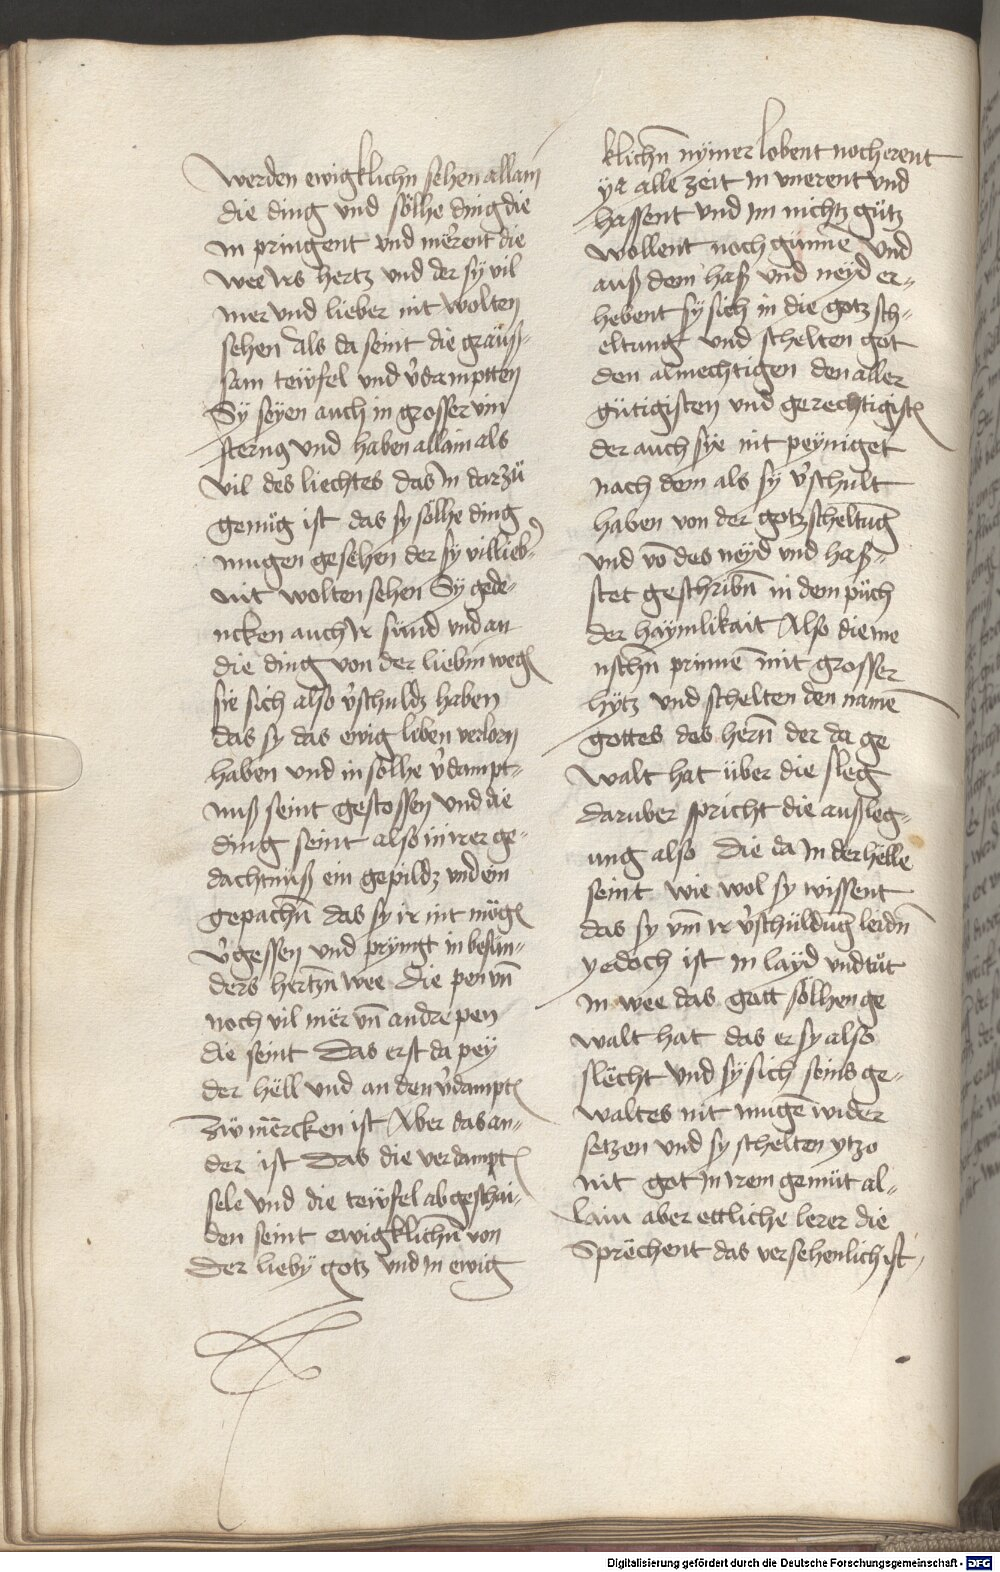 werden ewigklichn sehen allain
die ding vnd sölhe ding die
in pringent vnd mërent die
wee irs hertz vnd der sy vil
mer vnd lieber nit wolten
sehen als da seint die gräuß-
sam teẅfel vnd v̓damptten
Sÿ seyen auch in grosser vin
sterng vnd haben allain als
vil des liechtes das in darzů
genůg ist das sy sölhe ding
mugen gesehen der sy villieb̓
nit wolten sehen Sÿ gede-
ncken auch ir sünd vnd an
die ding von der lieb in wegn
sie sich also v̓schuldz haben
das sy das ewig leben verlorn
haben vnd in sölhe v̓dampt-
nuß seint gestossen vnd die
ding seint also in irer ge-
dächtnuß ein gepildz vnd ein
gepachn̄ das sy ir nit mögn
v̓gessen vnd pryngt in besun-
ders hertzn̄ wee die pen vn̄
noch vil mër vn̄ andre pen
die seint Das erst da pey
der hëll vnd an den v̓damptn
zw mërcken ist Aber das an-
der ist Das die verdamptn
sele vnd die teẅfel abgeschai-
den seint ewigklichn̄ von
der lieby gotz vnd in ewig
klichn̄ nymer lobent noch erent
ÿa alle zeit in vnerent vnd
hassent vnd im nichtz gůtz
wollent noch gunnē vnd
auß dem haß vnd neyd er-
hebent sy sich in die gotz sch-
eltung vnd schelten got
den almechtigen den aller
gütigisten vnd gerechtigistn
der auch sye nit peyniget
nach dem als sy v̓schult
haben von der gotzscheltūg
vnd vō des neyd vnd haß-
stet geschribn̄ in dem půch
der haymlikait Also die me
nschn̄ prinnē mit grosser
hytz vnd schelten den namē
gottes des hern̄ der da ge
walt hat über die sleg
daruber spricht die außleg-
ung also Die da in der helle
seint wie wol sy wissent
das sy vm̄ ir v̓schüldūg leidn̄
yedoch ist in layd vnd tůt
in wee das gott sölhen ge
walt hat das er sy also
slëcht vnd sy sich seins ge-
waltes nit mugē wider
setzen vnd sy schelten ytzo
nit got in irem gemüt al-
lain aber ettliche lerer die
Sprëchent das versehenlich ist
Digitalisierung gefördert durch die Deutsche Forschungsgemeinschaft - DFG